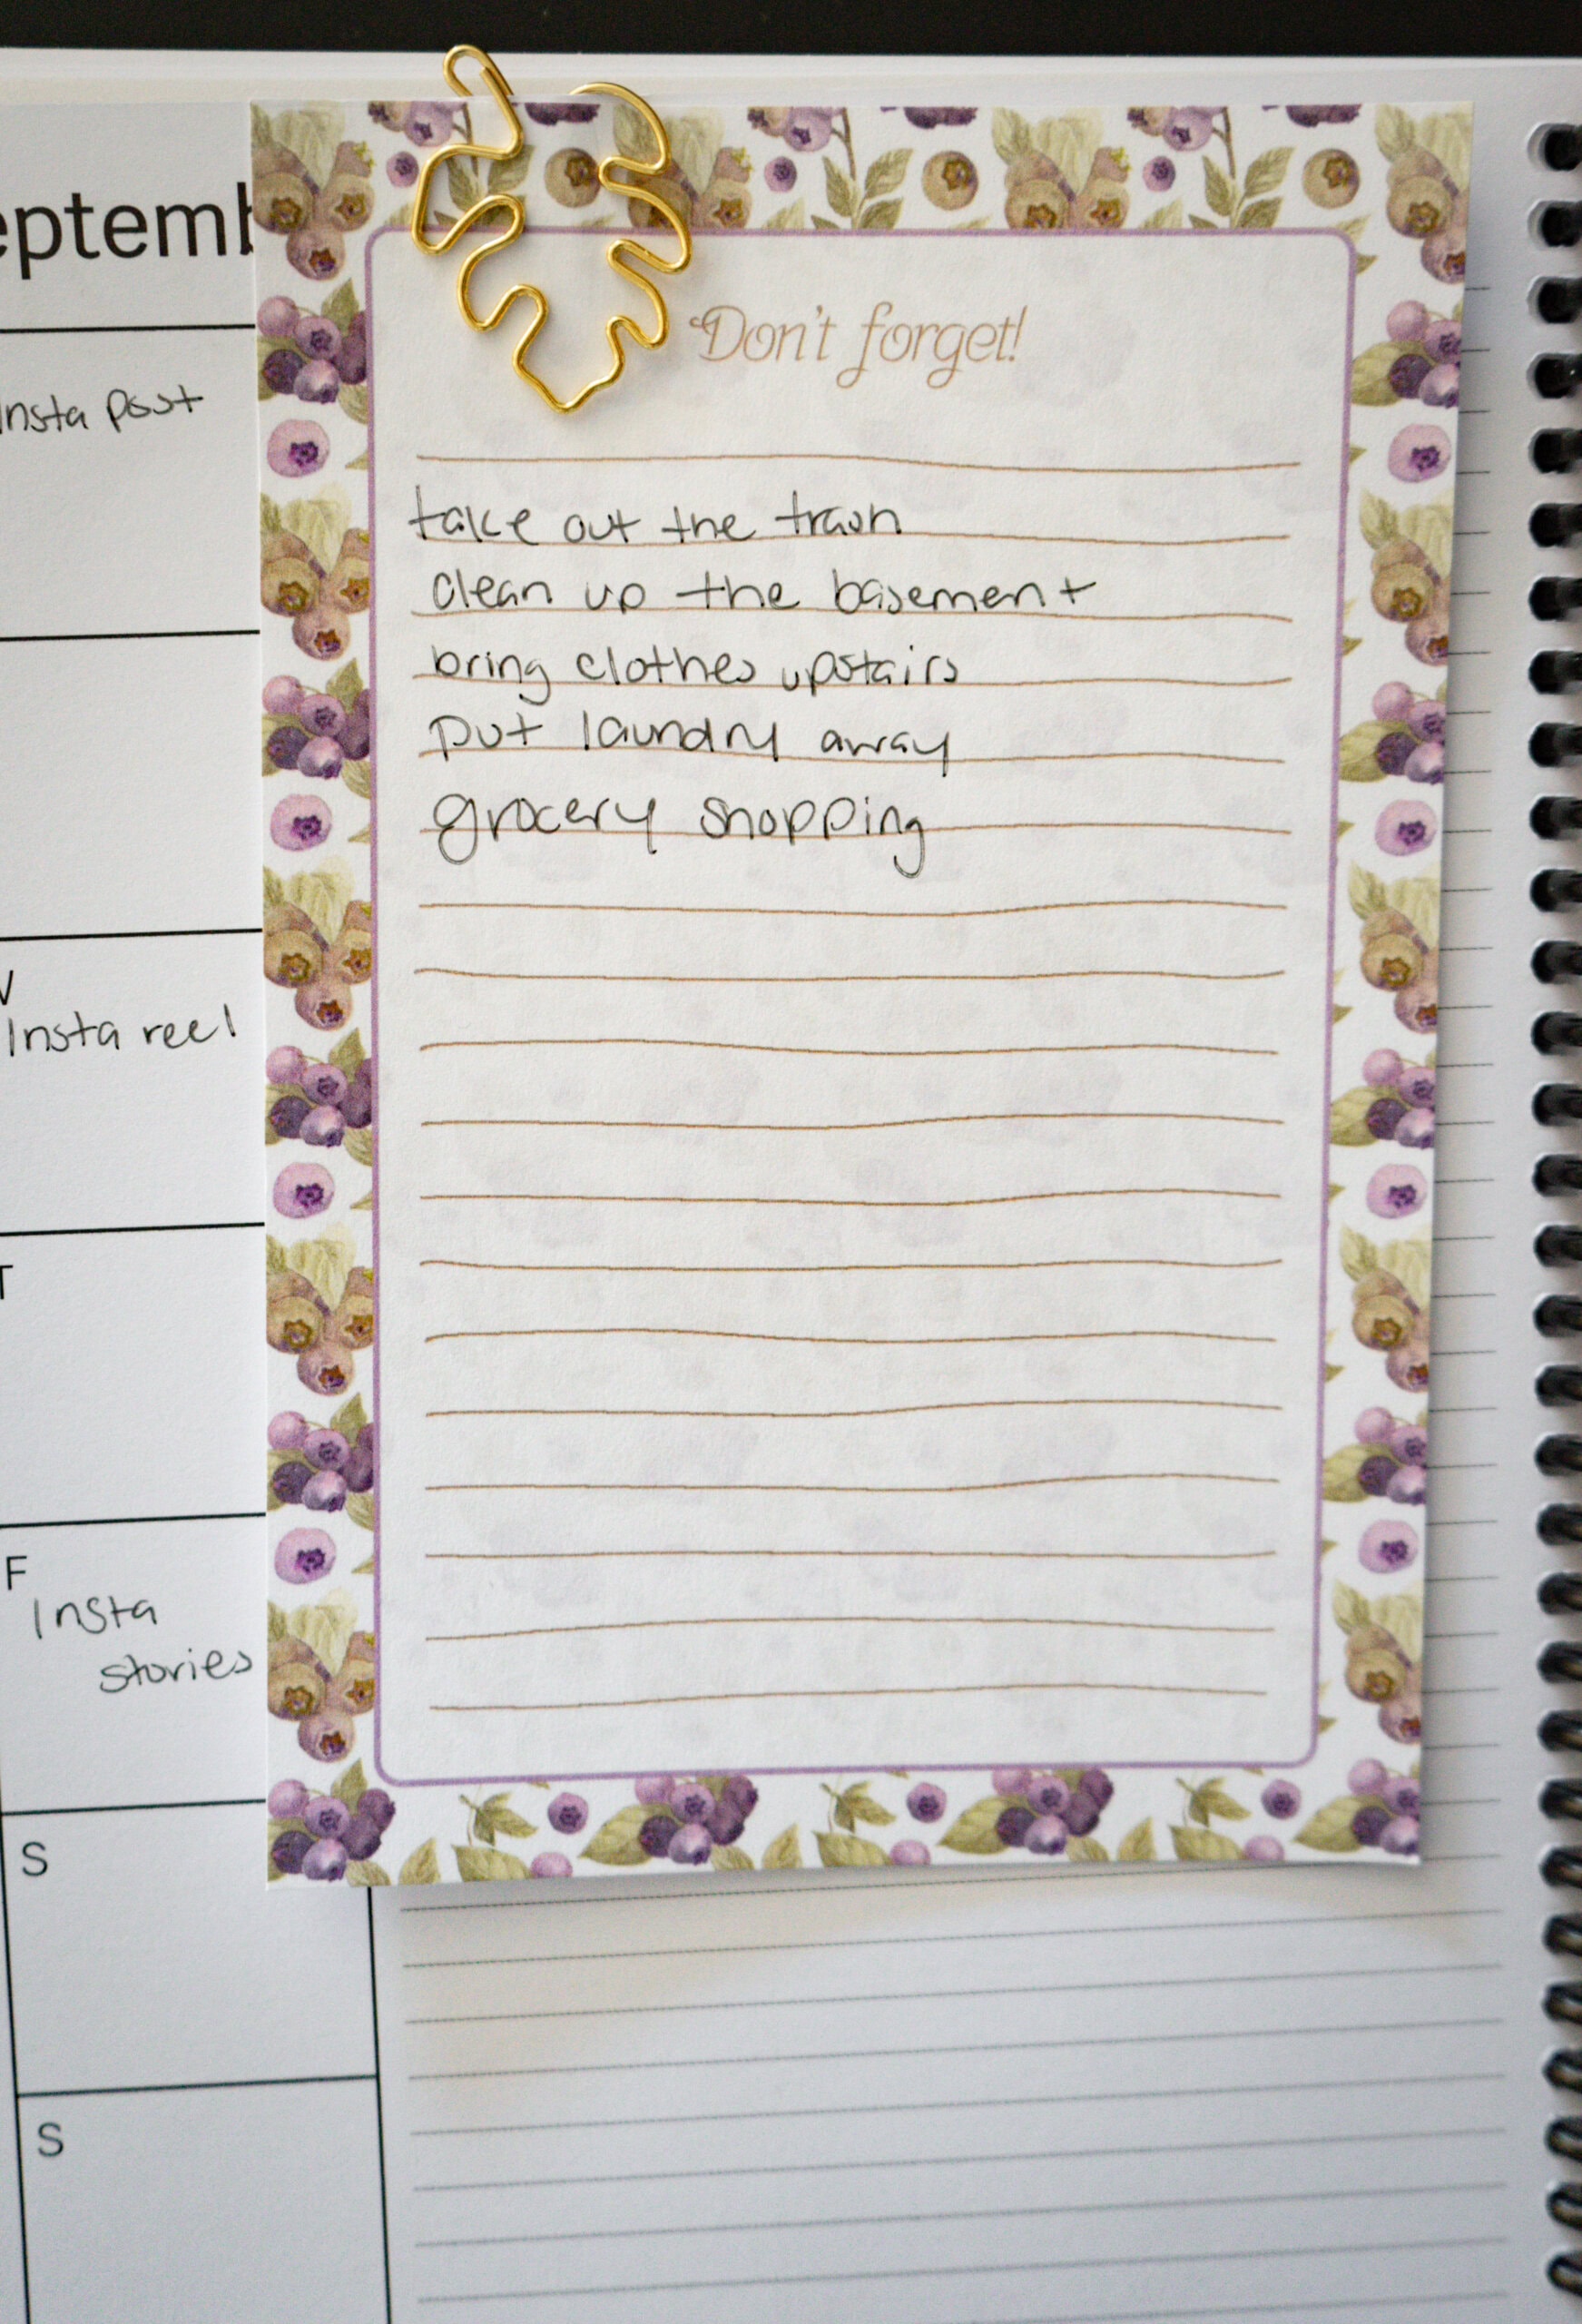 eptemb
Insta post
Don't forget!
take out the trash
clean up the basement
bring clothes upstairs
put laundry away
grocery shopping
W
Insta reel
T
F
Insta
stories
S
S